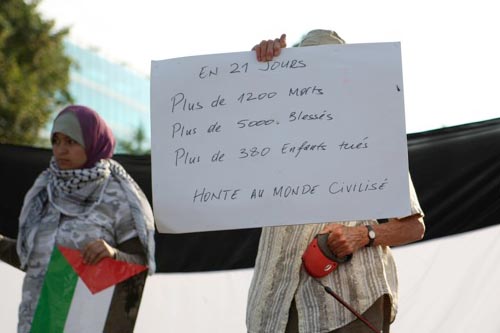 EN 21 JOURS
Plus de 1200 Morts
Plus de 5000. Blessés
Plus de 380 Enfants tués
HONTE AU MONDE CIVILISÉ